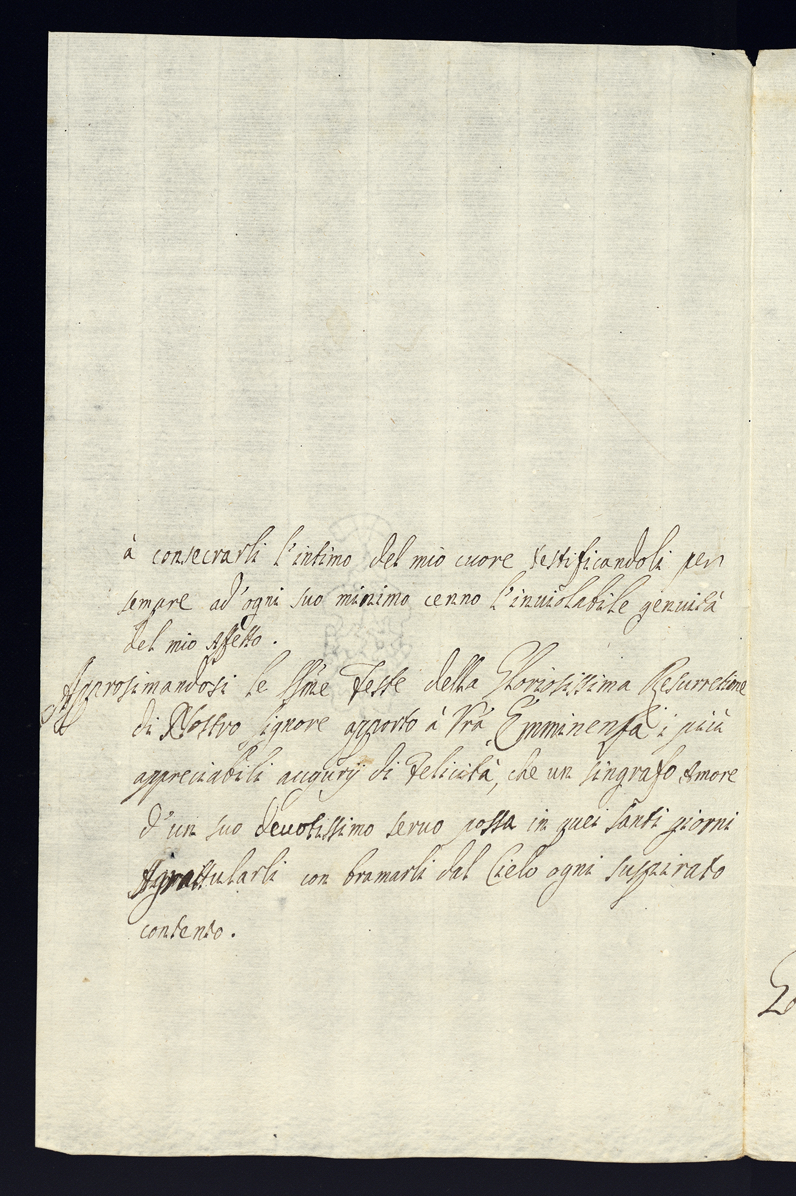 à consecrarli l'intimo del mio cuore testificandoli per
sempre ad'ogni suo minimo cenno l'inuiolabile genuità
del mio Affetto.
Approsimandosi le ssme Feste della Gloriosissima Resurretione
di Nostro signore apporto à Vrã Emminenza i più
appreciabili augurÿ di Felicità, che un singrafo Amore
d'un suo deuotissimo seruo possa in quei santi giorni
Agrattularli con bramarli dal Cielo ogni suspirato
contento.